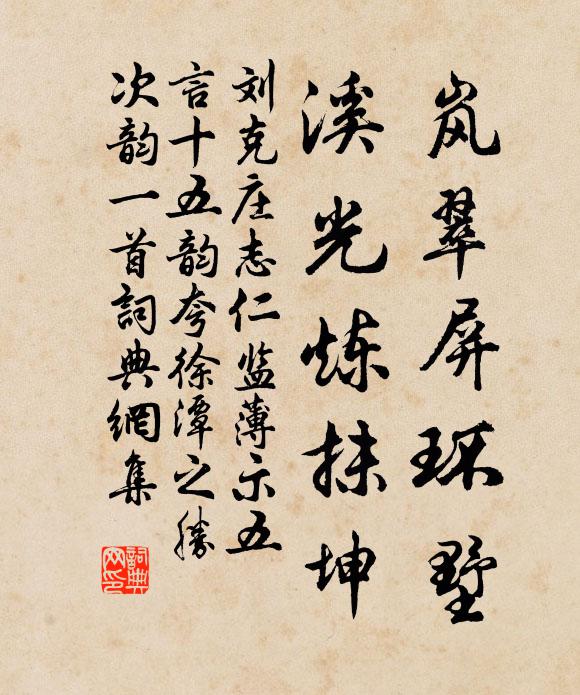 岚翠屏环墅
溪光炼抹坤
刘克庄志仁监薄示五
言十五韵夸徐潭之勝
次韵一首詞典網集
詞典
网印